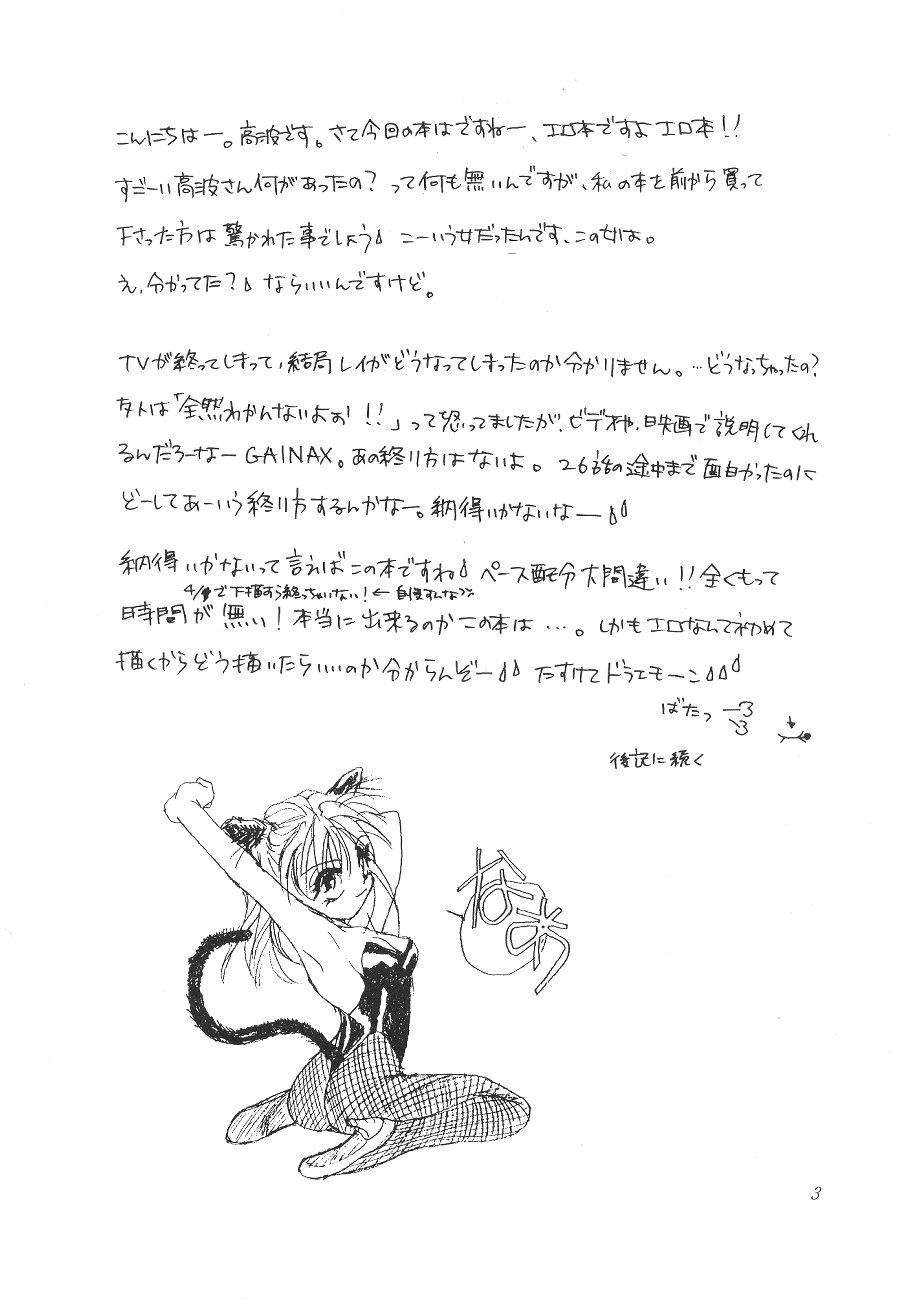 こんにちはー。高波です。さて今回の本はですねー、エロ本ですよエロ本!!
すごーい高波さん何があったの?って何も無いんですが、私の本を前から買って
下さった方は驚かれた事でしょう こーいう女だったんです、この女は。
え、分かってた? ならいいんですけど。
TVが終ってしまって、結局レイがどうなってしまったのか分かりません。…どうなっちゃったの?
友人は「全然わかんないよぉ!!」って怒ってましたが、ビデオや、映画で説明してくれ
るんだろーなーGAINAX。あの終り方はないよ。26話の途中まで面白かったのに
どーしてあーいう終り方するんかなー。納得いかないなー
納得いかないって言えばこの本ですね ペース配分大間違い!!全くもって
で下描すら終っちゃいない!←自慢すんなっ
時間が無い!本当に出来るのかこの本は…。しかもエロなんて初めて
描くからどう描いたらいいのか分からんぞー たすけてドラエモーン
ばたっ
後記に続く
3